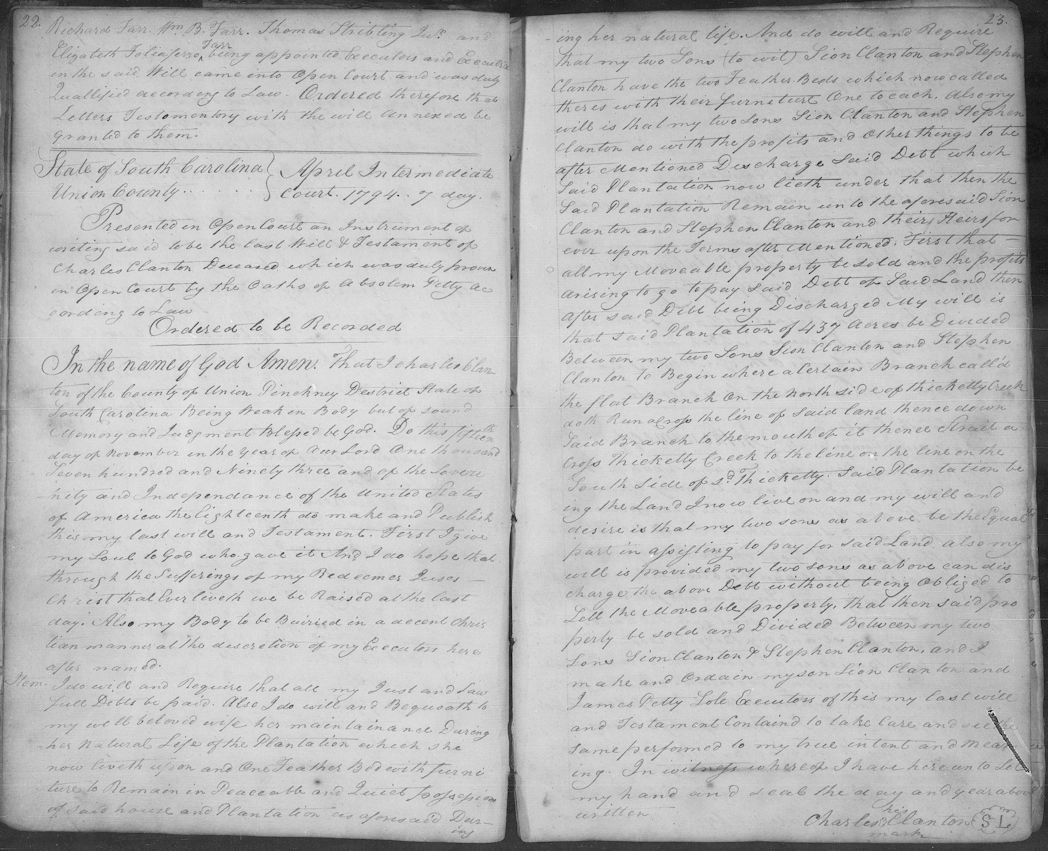 22.
Richard Farr. Wm B. Farr. Thomas Stribling Jur. and
Elizabeth Taliaferro Farr being appointed Executors and Executrix
in the said Will came into Open Court and was duly
Quallified according to Law. Ordered therefore that
Letters Testomentory with the will Annexed be
granted to them.
State of South Carolina } April Intermediate
Union County. . . . . . } Court. 1794. 7 day.
Presented in Open Court an Instrument of
writing said to be the last Will & Testament of
Charles Clanton Deceased which was duly proven
in Open Court by the Oaths of Absolem Petty ac
cording to Law
Ordered to be Recorded
In the name of God Amen. That I Charles Clan
ton of the County of Union Pinckney District State of
South Carolina Being Weak in Body but of sound
Memory and Judgment Blessed be God. Do this fifteenth
day of November in the year of Our Lord One thousand
Seven hundred and Ninety three and of the Sovere
nity and Independance of the United States
of America the Eighteenth do make and Publish
this my last will and Testament. First I give
my Soul to God who gave it And I do hope that
through the Sufferings of my Redeemer Jesus
Christ that Ever liveth we be Raised at the last
day. Also my Body to be Buried in a decent Chris
tian manner at the discretion of my Executors here
after named.
Item I do will and Require that all my Just and Law
full Debts be paid. Also I do will and Bequeath to
my well beloved wife her maintainance During
her Natural Life of the Plantation which she
now liveth upon and One Feather Bed with furni
ture to Remain in Peaceable and Quiet possession
of said house and Plantation as aforesaid Dur-
ing
23.
ing her natural life. And do will and Require
that my two Sons (to wit) Sion Clanton and Stephen
Clanton have the two Feather Beds which now called
theres with their furniture One to each. Also my
will is that my two Sons Sion Clanton and Stephen
Clanton do with the profits and Other things to be
after Mentioned Discharge Said Debt which
Said Plantation now lieth under that then the
Said Plantation Remain unto the aforesaid Sion
Clanton and Stephen Clanton and their Heirs for
ever upon the Terms after Mentioned. First that
all my Moveable property be sold and the profits
arising to go to pay Said Debt of Said Land then
after said Debt being Discharged My will is
that said Plantation of 437 Acres be Divided
Between my two Sons Sion Clanton and Stephen
Clanton to Begin where a Certain Branch call'd
the flat Branch On the north side of Thicketty Creek
doth Run across the line of said land thence down
Said Branch to the mouth of it thence Strait a
cross Thicketty Creek to the line on the line on the
South Side of sd Thicketty. Said Plantation be
ing the Land I now live on and my will and
desire is that my two sons as above be the Equal
part in assisting to pay for said Land also my
will is provided my two sons as above can dis
charge the above Debt without being Obliged to
Sell the Moveable property, that then said pro
perty be sold and Divided Between my two
Sons Sion Clanton & Stephen Clanton, and I
make and Ordain my son Sion Clanton and
James Petty Sole Executors of this my last will
and Testament Containd to take Care and see the
same performed to my true intent and Mean
ing. In witness whereof I have hereunto Set
my hand and seal the day and year above
written
Charles his Clanton (S L)
mark